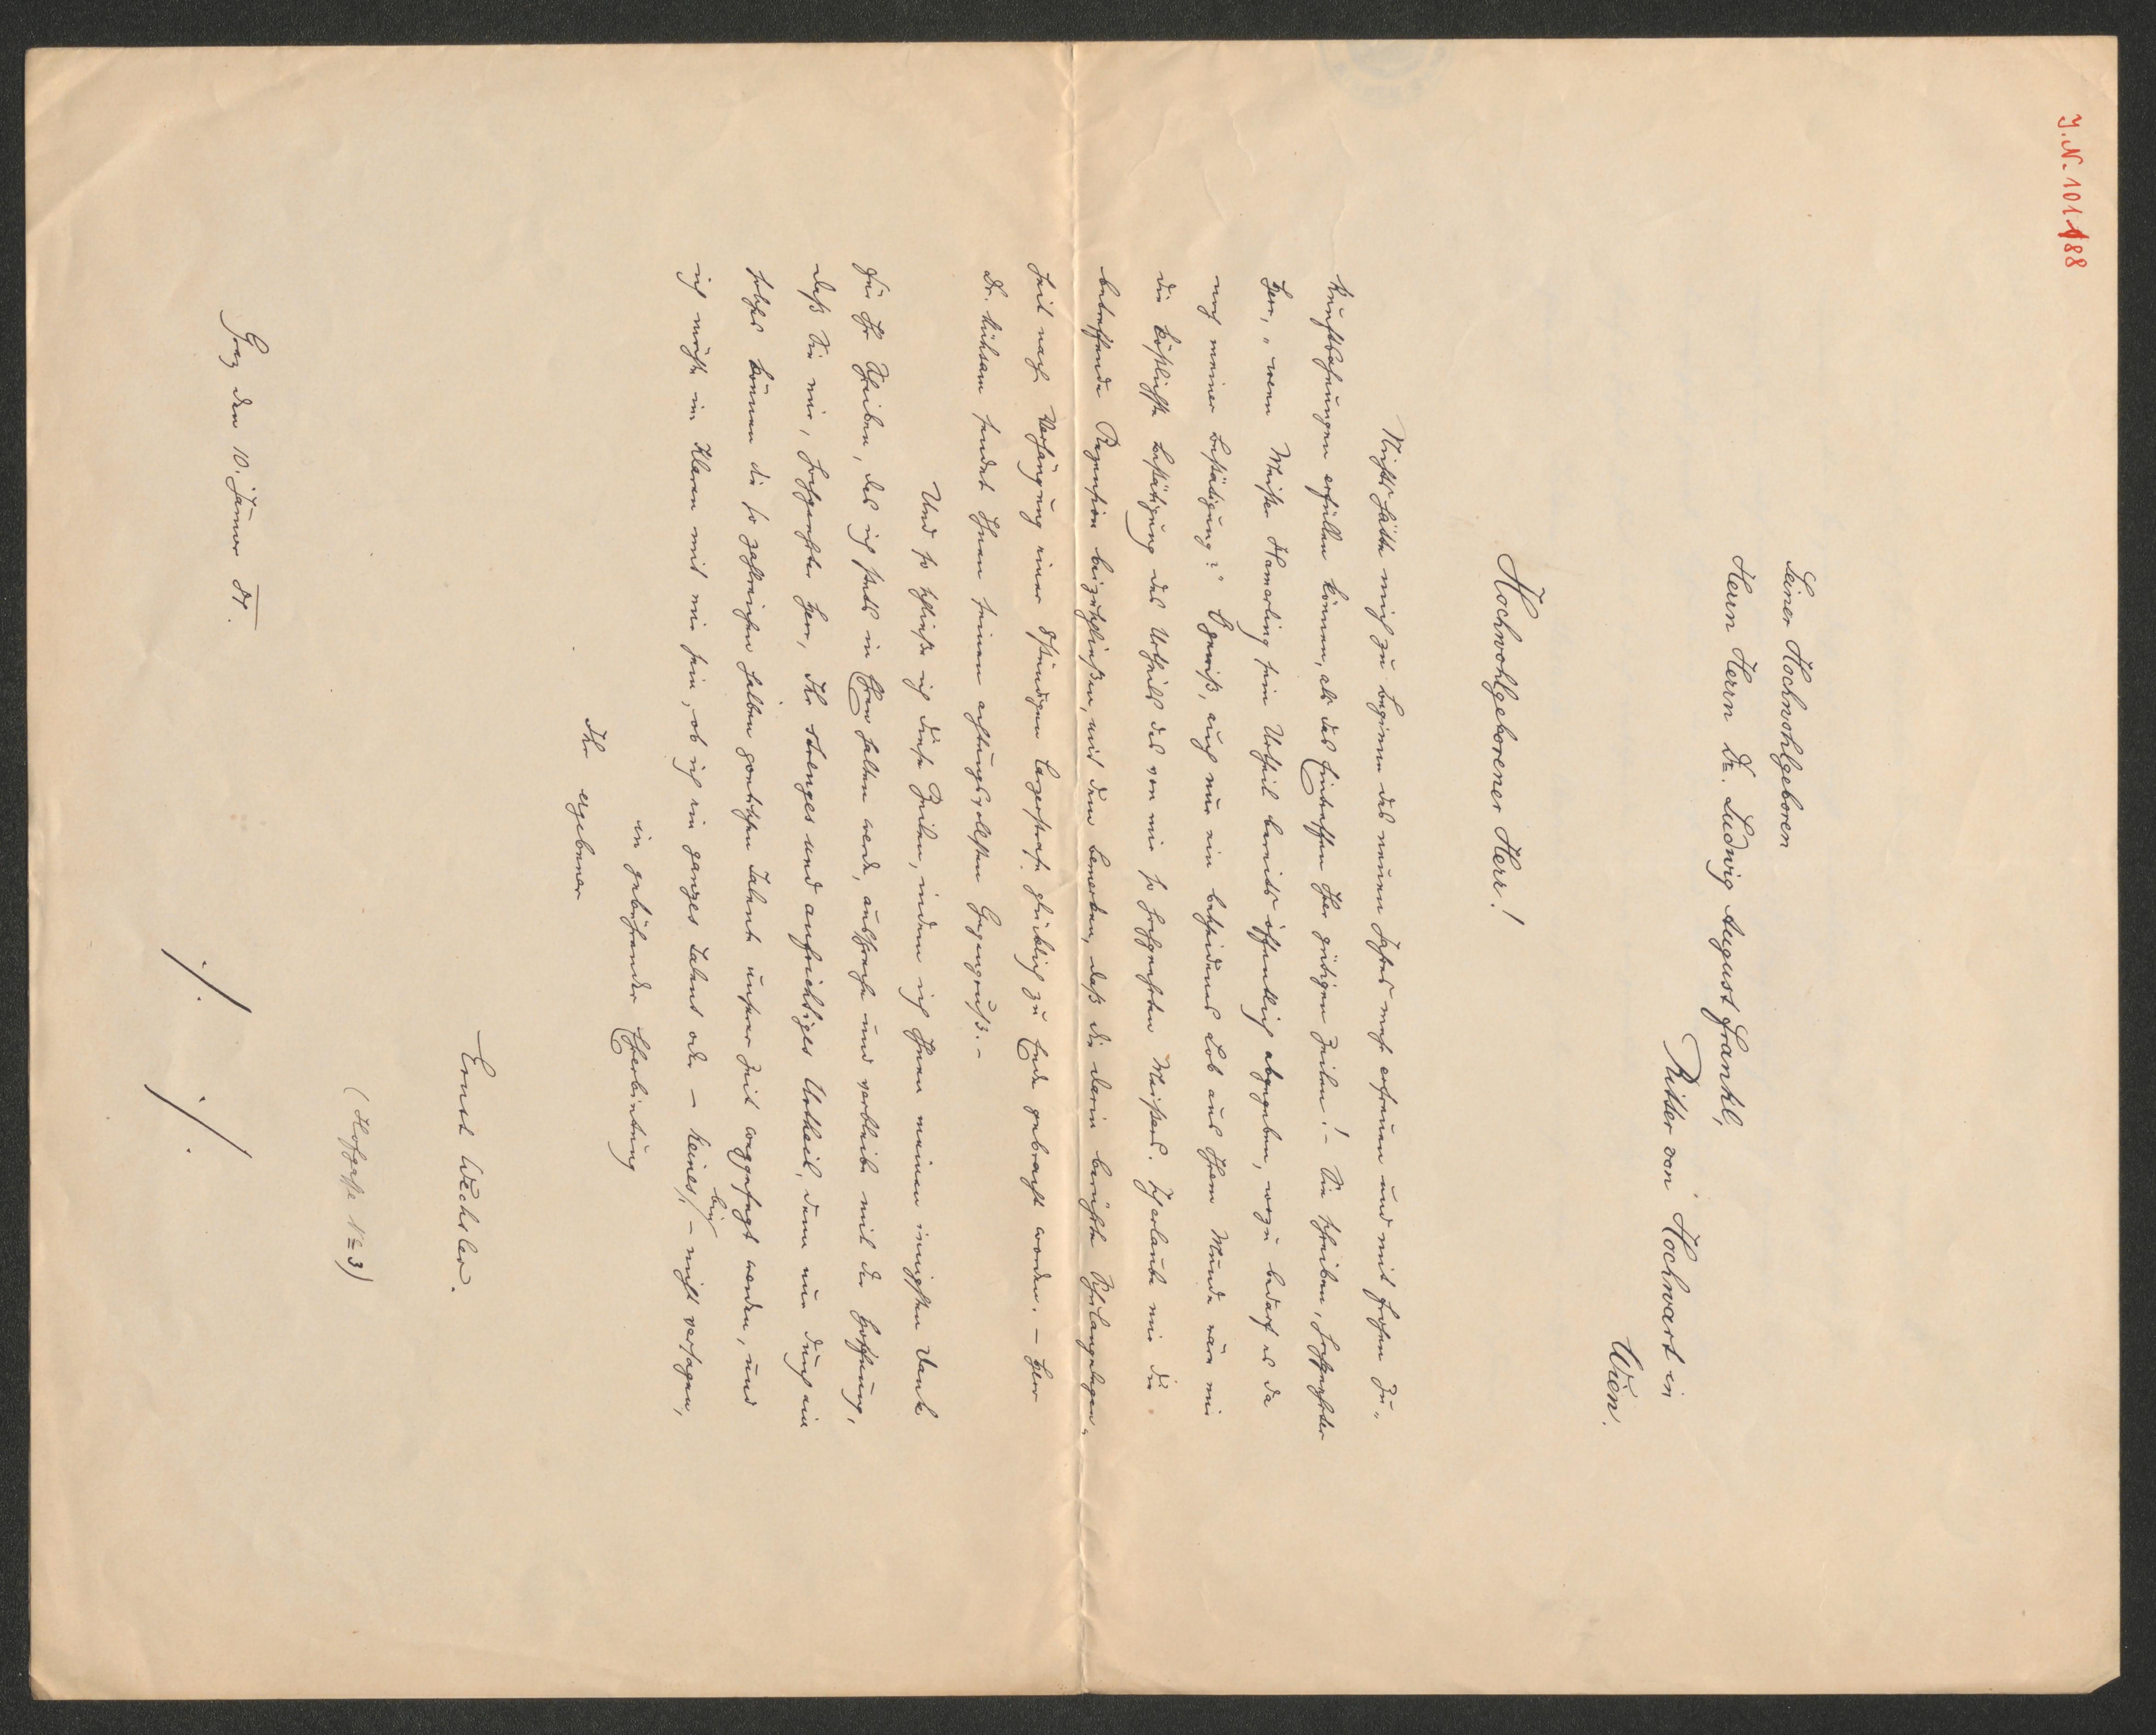 J. N. 101188
Seiner Hochwohlgeboren
Herrn Herrn Dr. Ludwig August Frankl,
Ritter von Hochwart in
Wien.
Hochwohlgeborener Herr!
Nichts hätte mich zu Beginn des neuen Jahres mehr erfreuen und mit frohen Zu-
kunftsahnungen erfüllen können, als das Eintreffen Ihrer gütigen Zeilen! – Sie schreiben, hochgeehrter
Herr, „wenn Meister Hamerling sein Urtheil bereits öffentlich abgegeben, wozu bedarf es da
noch meiner Bestätigung?“ O gewiß, auch nur ein bescheidenes Lob aus Ihrem Munde wäre mir
die köstlichste Bestätigung des Urtheils des von mir so hochgeehrten Meisters. Ich erlaube mir die
betreffende Rezension beizuschließen, mit dem Bemerken, daß die darin berührte Schulangelegen-
heit nach Verhängung einer stündigen Carzerstrafe glücklich zu Ende gebracht worden. – Herr
Dr. Mühsam sendet Ihnen seinen achtungsvollsten Gegengruß. –
Und so schließe ich diese Zeilen, indem ich Ihnen meinen innigsten Dank
für Ihr Schreiben, das ich stets in Ehren halten werde, ausspreche und verbleibe mit der Hoffnung,
daß Sie mir, hochgeehrter Herr, Ihr strenges und aufrichtiges Urtheil, denn nur durch ein
solches können die so zahlreichen halben poetischen Talente unserer Zeit weggefegt werden, und
ich möchte im Klaren mit mir sein, ob ich ein ganzes Talent oder – keines bin, – nicht versagen,
in gebührender Ehrerbietung
Ihr ergebener
Ernst Wechsler.
(Hofgasse No 3)
Graz den 10. Jänner 81.
./. ./.